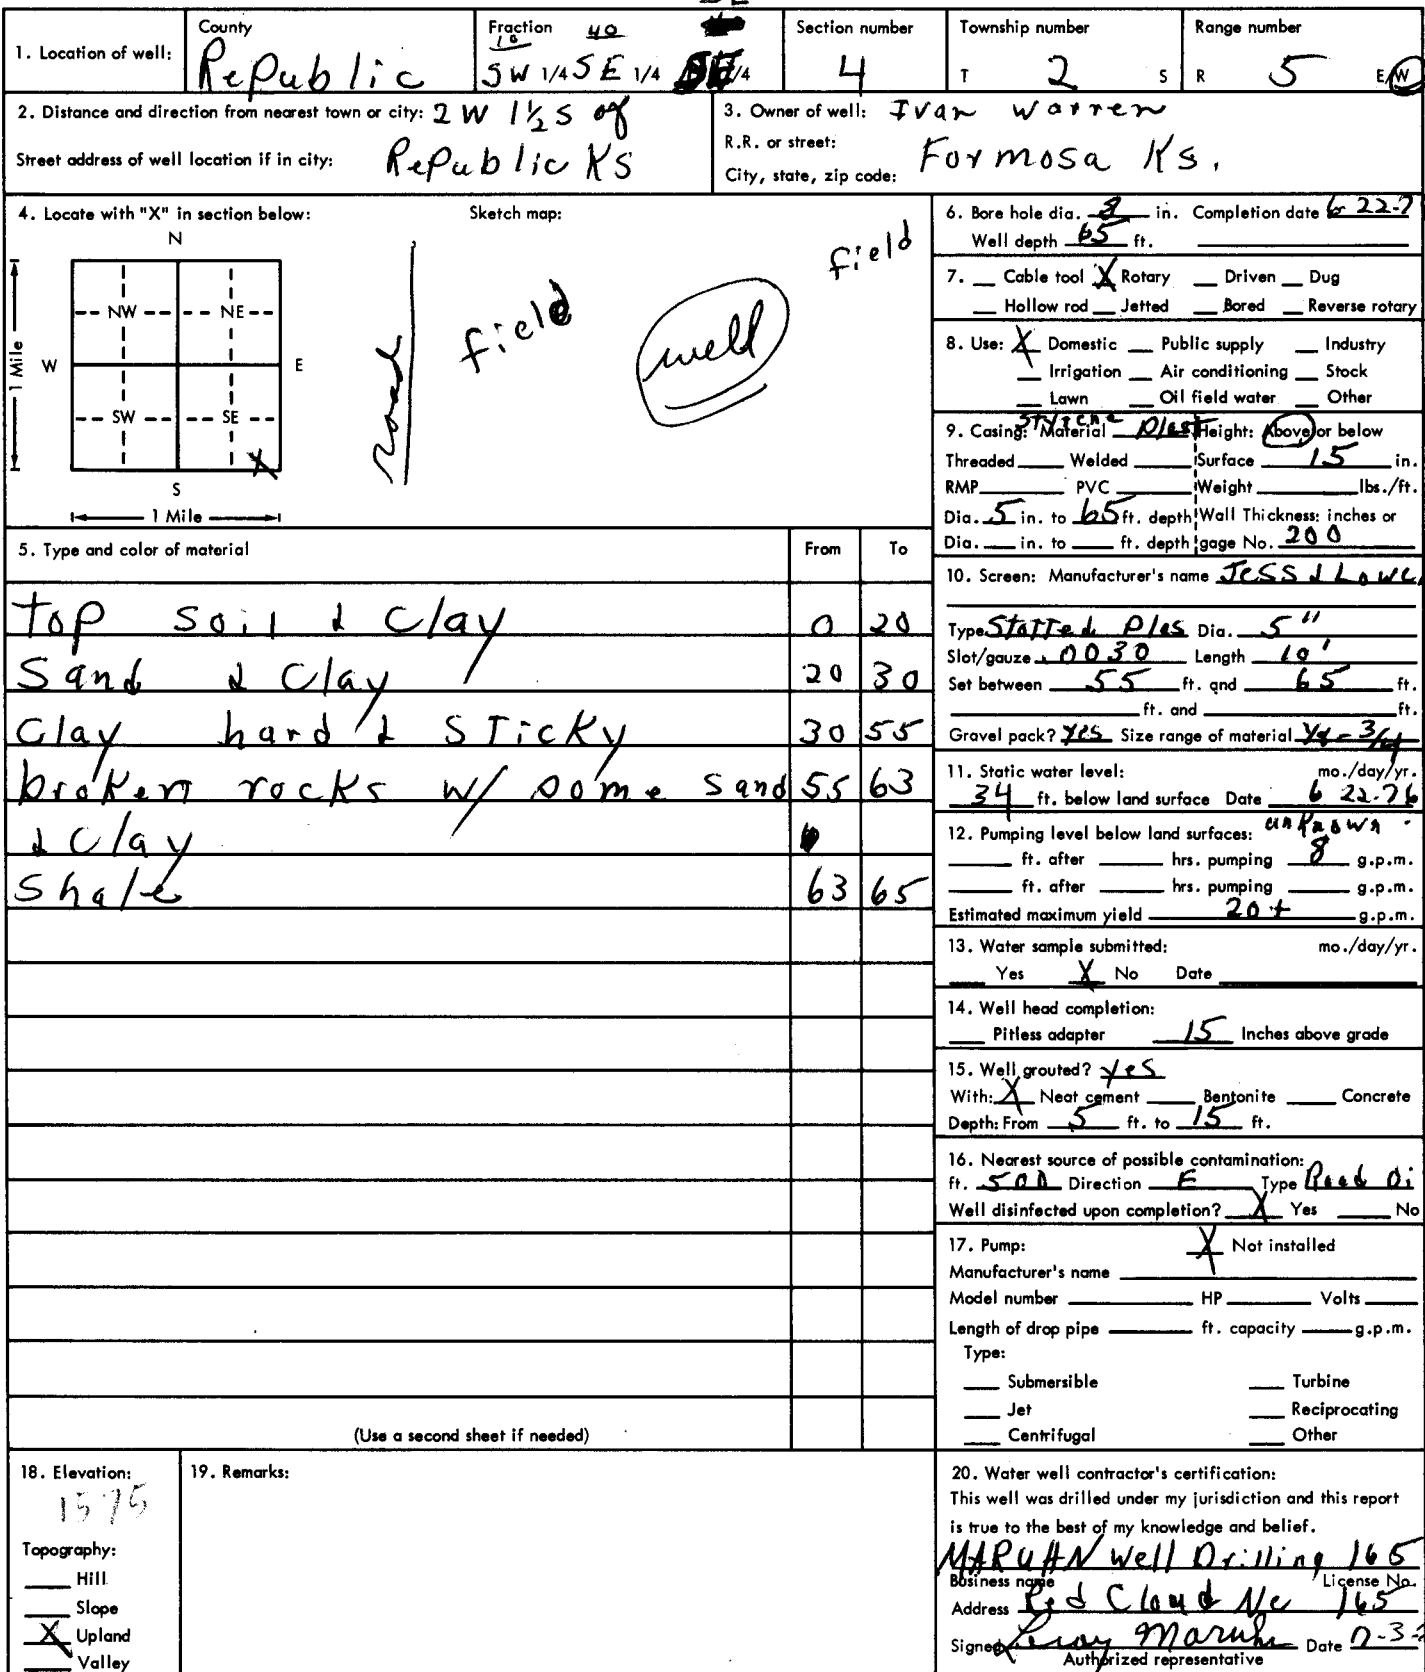 1. Location of well: County Republic Fraction SW 1/4 SE 1/4 SE 1/4 Section number 4 Township number T 2 S Range number R 5 E/W
10 40
2. Distance and direction from nearest town or city: 2W 1½ S of
Street address of well location if in city: Republic KS
3. Owner of well: Ivan Warren
R.R. or street:
City, state, zip code: Formosa Ks.
4. Locate with "X" in section below: Sketch map:
N
NW NE
W E
SW SE
X
S
1 Mile
1 Mile
road
field
well
field
5. Type and color of material From To
Top soil & Clay 0 20
Sand & Clay 20 30
Clay hard & Sticky 30 55
broken rocks w/ some sand 55 63
& Clay
Shale 63 65
(Use a second sheet if needed)
6. Bore hole dia. in. Completion date 6-22-7
Well depth 65 ft.
7. Cable tool X Rotary Driven Dug
Hollow rod Jetted Bored Reverse rotary
8. Use: X Domestic Public supply Industry
Irrigation Air conditioning Stock
Lawn Oil field water Other
9. Casing: Material Styrene Plast Height: Above or below
Threaded Welded Surface 15 in.
RMP PVC Weight lbs./ft.
Dia. 5 in. to 65 ft. depth Wall Thickness: inches or
Dia. in. to ft. depth gage No. 200
10. Screen: Manufacturer's name Jess & Lowe
Type Slotted Plas Dia. 5"
Slot/gauze .0030 Length 10'
Set between 55 ft. and 65 ft.
ft. and ft.
Gravel pack? Yes Size range of material 3/4
11. Static water level: mo./day/yr.
34 ft. below land surface Date 6 22-76
12. Pumping level below land surfaces: unknown
ft. after hrs. pumping 8 g.p.m.
ft. after hrs. pumping g.p.m.
Estimated maximum yield 20+ g.p.m.
13. Water sample submitted: mo./day/yr.
Yes X No Date
14. Well head completion:
Pitless adapter 15 Inches above grade
15. Well grouted? yes
With: X Neat cement Bentonite Concrete
Depth: From 5 ft. to 15 ft.
16. Nearest source of possible contamination:
ft. 500 Direction E Type Road Di
Well disinfected upon completion? X Yes No
17. Pump: X Not installed
Manufacturer's name
Model number HP Volts
Length of drop pipe ft. capacity g.p.m.
Type:
Submersible Turbine
Jet Reciprocating
Centrifugal Other
18. Elevation:
1575
Topography:
Hill
Slope
X Upland
Valley
19. Remarks:
20. Water well contractor's certification:
This well was drilled under my jurisdiction and this report
is true to the best of my knowledge and belief.
MARUHN Well Drilling 165
Business name License No.
Address Red Cloud Ne 165
Signed Leroy Maruhn Date 7-3-
Authorized representative